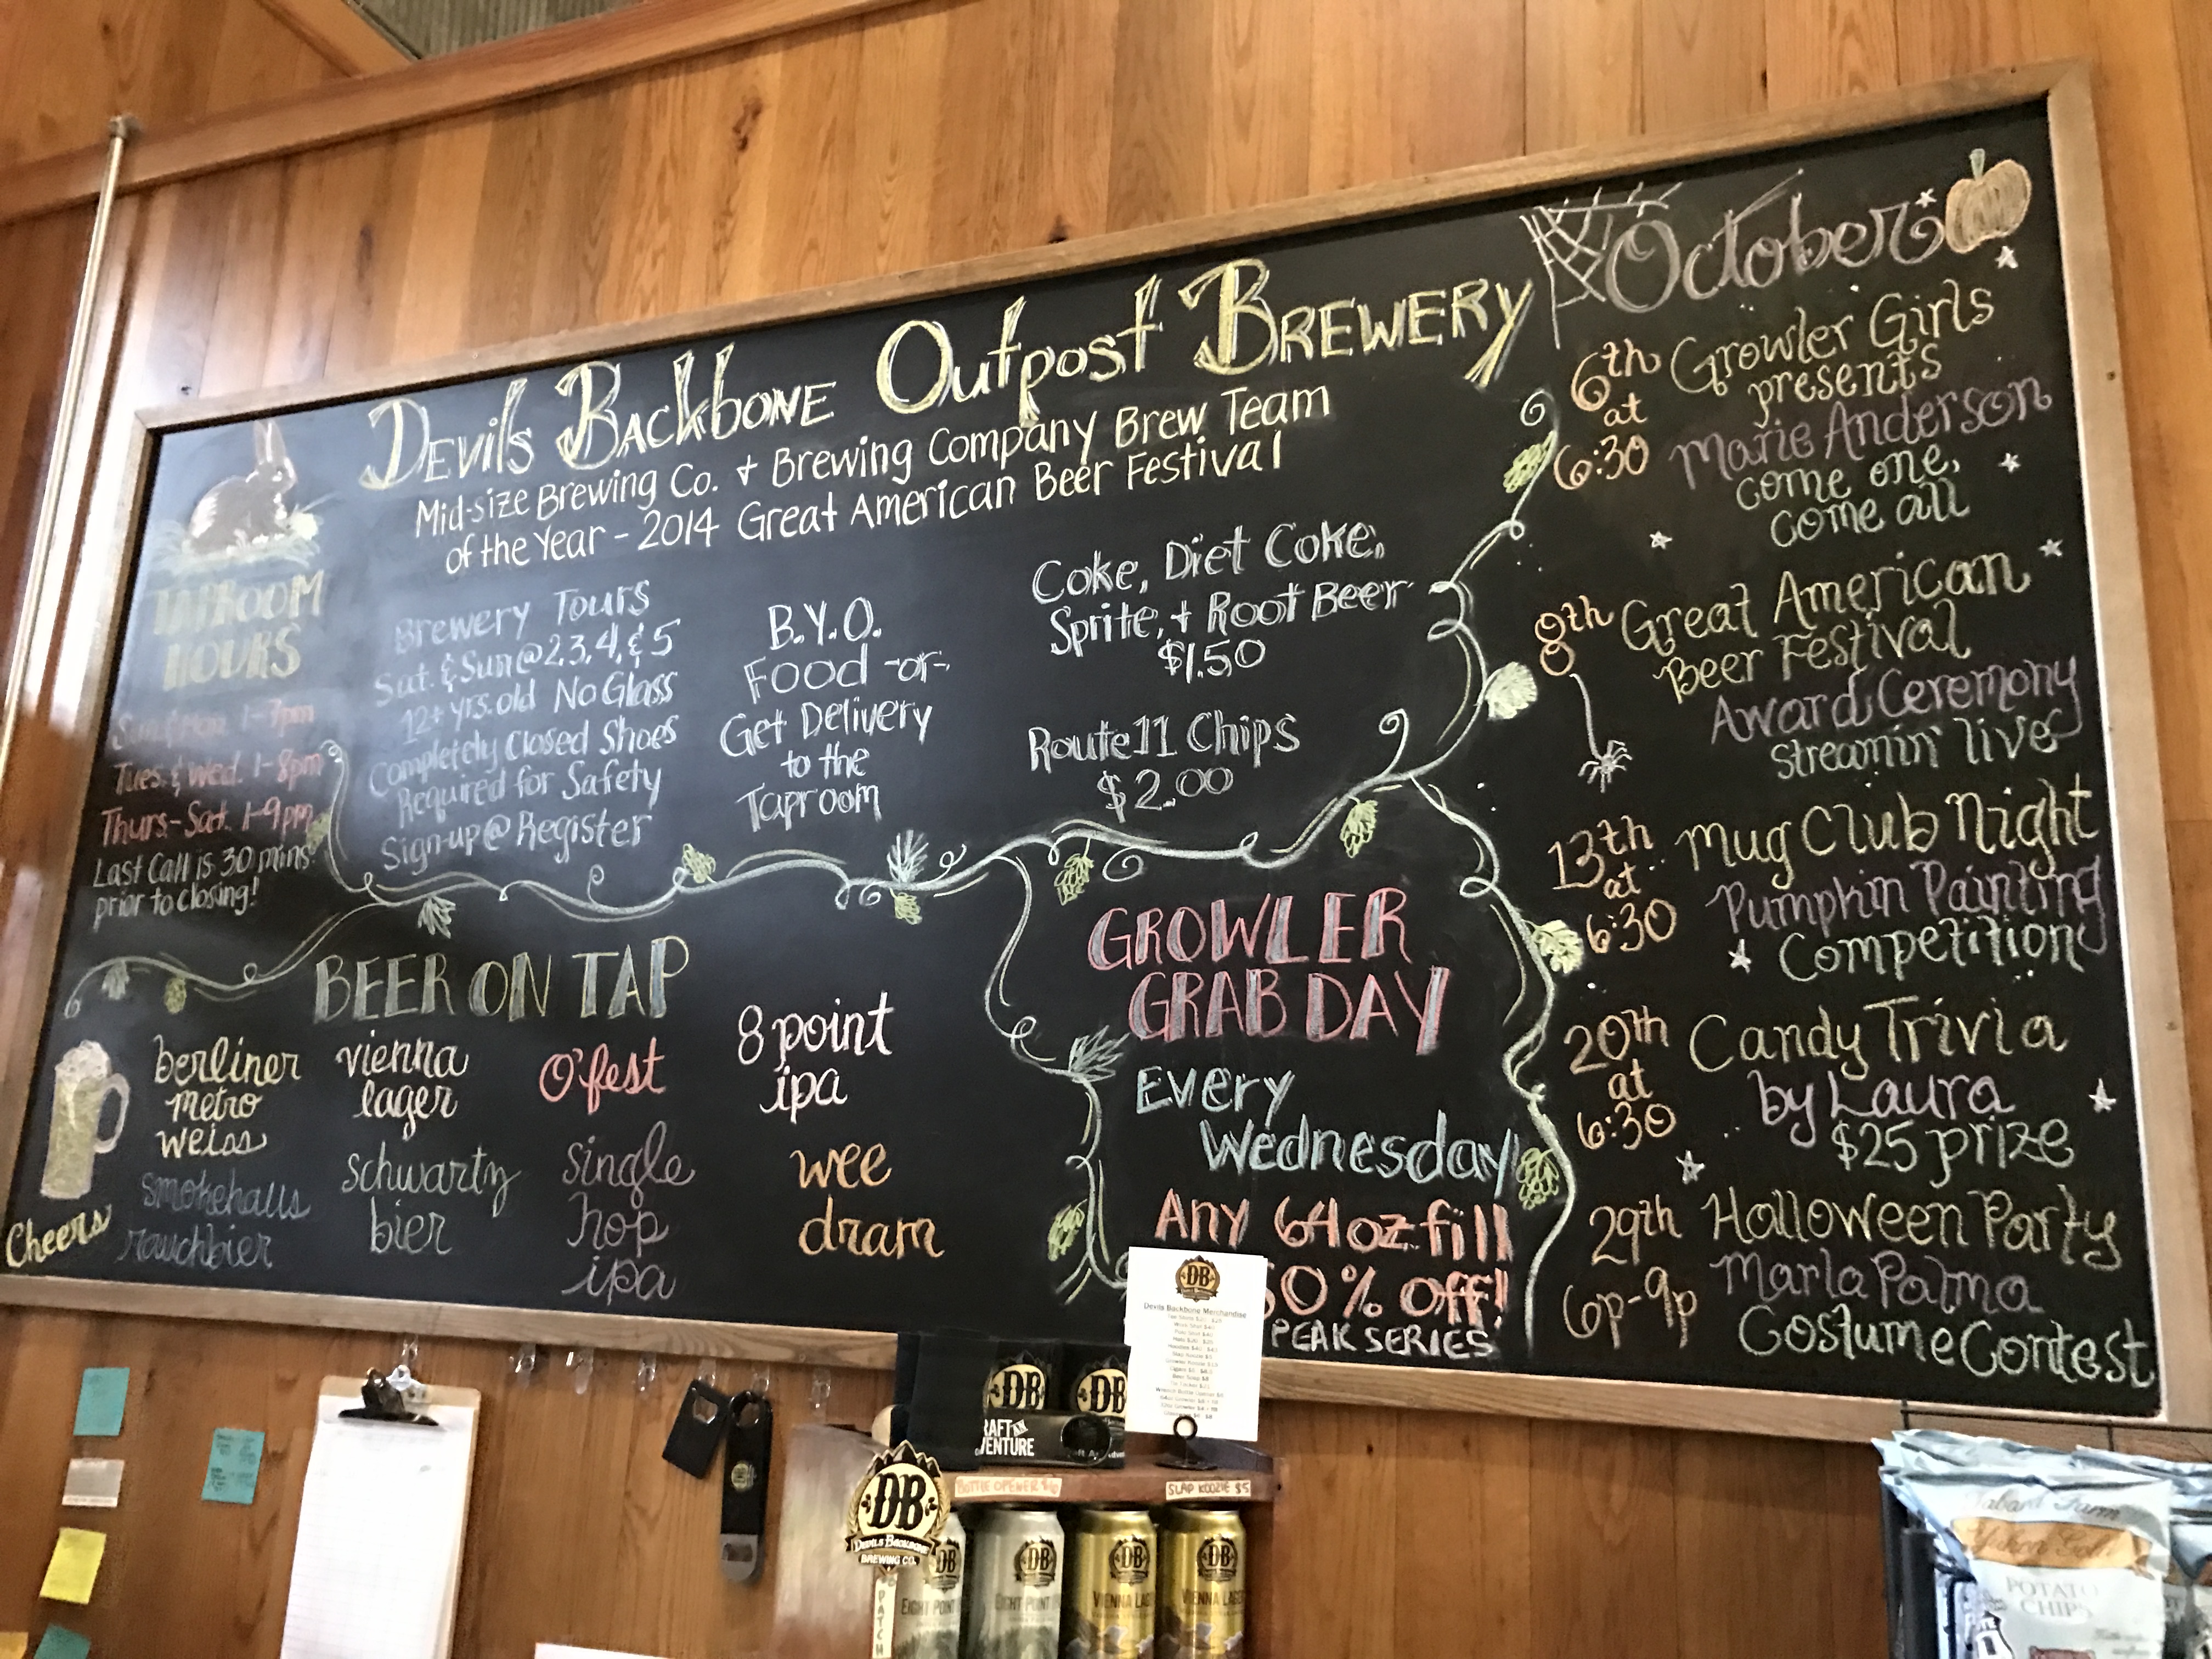 Devils Backbone Outpost Brewery
Mid-size Brewing Co. + Brewing Company Brew Team
of the Year - 2014 Great American Beer Festival
HOURS
Sun & Mon. 1-7pm
Tues. & Wed. 1-8pm
Thurs-Sat. 1-9pm
Last Call is 30 mins.
prior to closing!
Brewery Tours
Sat. & Sun @ 2,3,4, & 5
12+ yrs. old No Glass
Completely Closed Shoes
Required for Safety
Sign-up @ Register
B.Y.O.
Food -or-
Get Delivery
to the
Taproom
Coke, Diet Coke,
Sprite, + Root Beer
$1.50
Route 11 Chips
$2.00
BEER ON TAP
berliner
metro
weiss
vienna
lager
O'fest
8 point
ipa
smokehaus
rauchbier
schwartz
bier
single
hop
ipa
wee
dram
Cheers
GROWLER
GRAB DAY
Every
Wednesday
Any 64oz fill
50% off!
PEAK SERIES
October
6th
at
6:30
Growler Girls
presents
Marie Anderson
come one,
come all
8th
Great American
Beer Festival
Award Ceremony
streamin' live
13th
at
6:30
Mug Club Night
Pumpkin Painting
Competition
20th
at
6:30
Candy Trivia
by Laura
$25 prize
29th
6p-9p
Halloween Party
Marla Palma
Costume Contest
DB
Devils Backbone Merchandise
DB
DB
RAFT
VENTURE
BOTTLE OPENER
SLAP KOOZIE $5
DB
DEVILS BACKBONE
BREWING CO.
PATCH
DB
EIGHT POINT
DB
EIGHT POINT
DB
VIENNA LAG
DB
VIENNA LAGE
Yukon Gold
POTATO
CHIPS